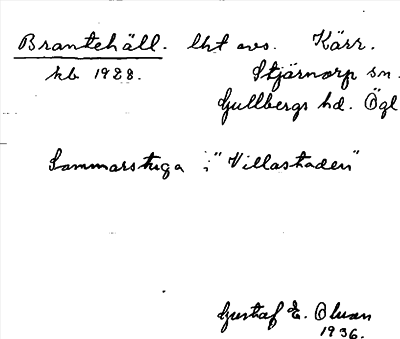 Brantehäll. lht avs. Kärr.
kb 1928. Stjärnorp sn.
Gullbergs hd. Ögl
Sommarstuga i "Villastaden"
Gustaf E. Olson
1936.